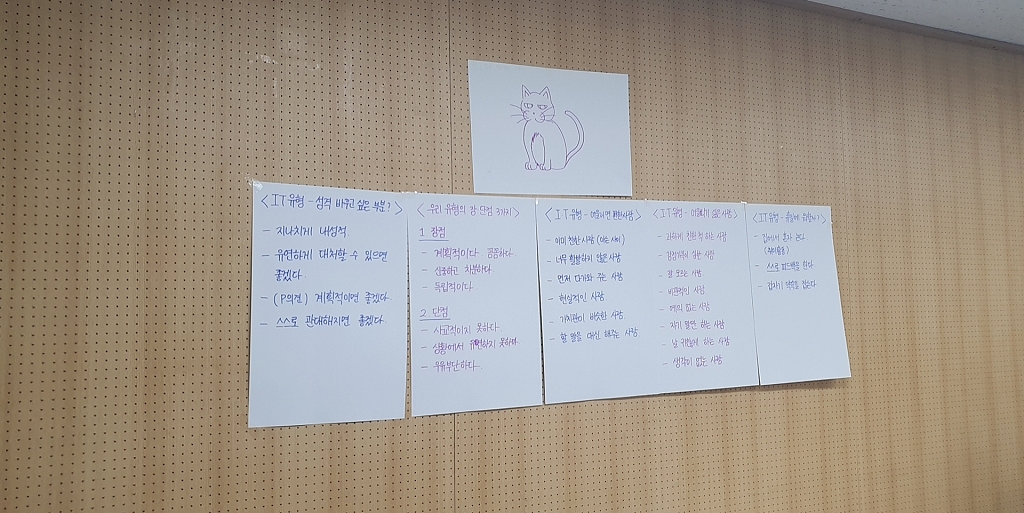 <IT유형 - 성격 바꾸고 싶은 부분?>
- 지나치게 내성적.
- 유연하게 대처할 수 있으면
좋겠다.
- (P의견) 계획적이면 좋겠다.
- 쓰스로 관대해지면 좋겠다.
<우리 유형의 장·단점 3가지>
1 장점
- 계획적이다. 꼼꼼하다.
- 신중하고 차분하다.
- 독립적이다.
2 단점
- 사교적이지 못하다.
- 상황에서 유연하지 못하다.
- 우유부단하다.
<IT유형 - 어울리면 편한사람>
- 이미 친한 사람 (아는 사이)
- 너무 활발하지 않은 사람
- 먼저 다가와 주는 사람
- 현실적인 사람
- 가치관이 비슷한 사람
- 할 말을 대신 해주는 사람
<IT유형 - 어울리기 싫은사람>
- 과하게 친한척 하는 사람
- 사람
- 잘 모르는 사람
- 비관적인 사람
- 예의 없는 사람
- 자기 말만 하는 사람
- 남 하는 사람
- 생각이 없는 사람
<IT유형 ->
- 집에서 혼자 논다.
(취미활동)
- 쓰스로 피드백을 한다.
- 갑자기 약속을 잡는다.